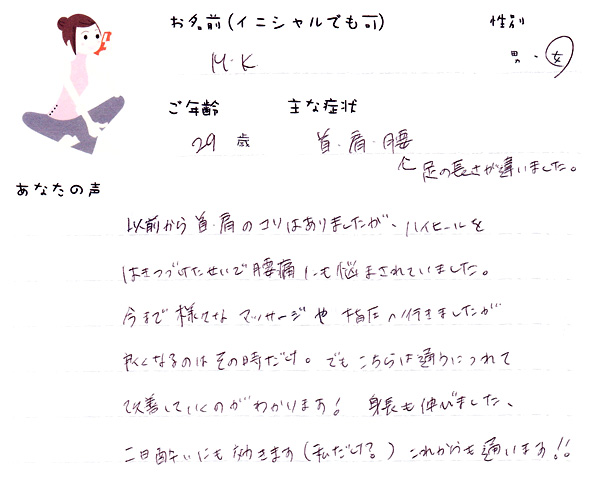 お名前(イニシャルでも可)
性別
M.K
男・女
ご年齢
主な症状
29 歳
首・肩・腰
足の長さが違いました。
あなたの声
以前から首・肩のコリはありましたが、ハイヒールを
はきつづけたせいで腰痛にも悩まされていました。
今まで様々な マッサージや 指圧へ行きましたが
良くなるのはその時だけ。でもこちらは通うにつれて
改善していくのがわかります! 身長も伸びました、
二日酔いにも効きます(私だけ?) これからも通います!!